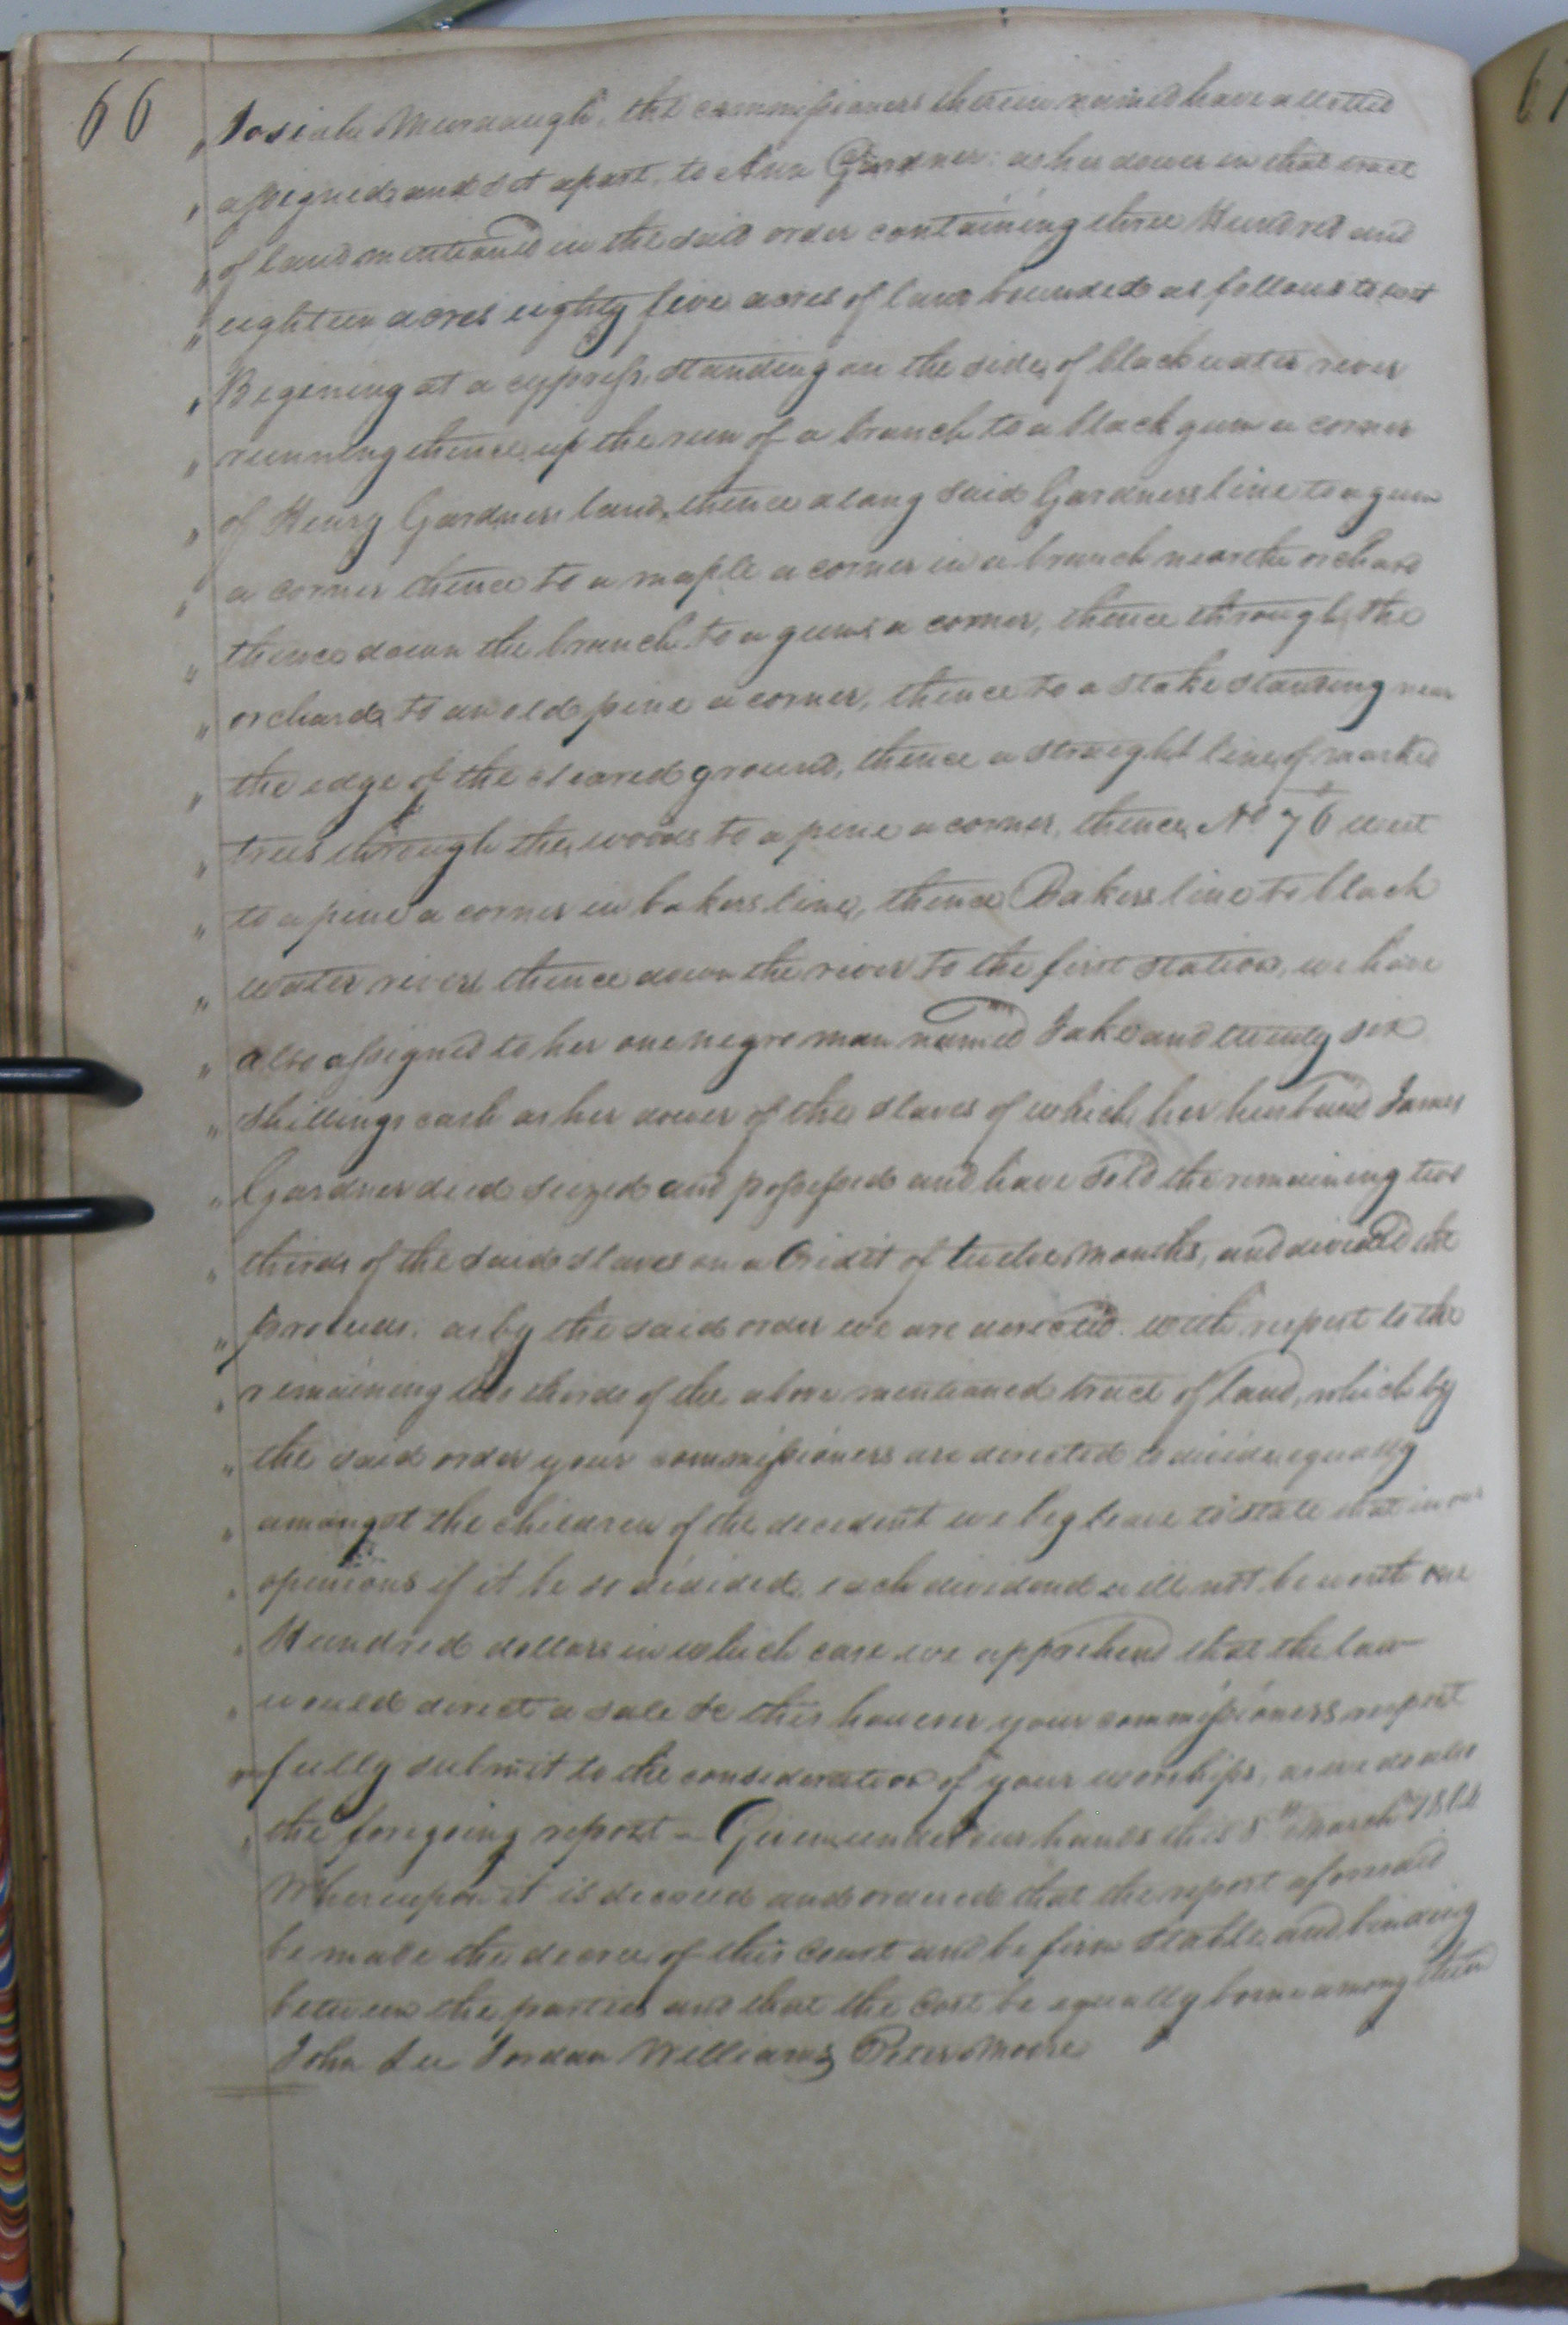 66
" Josiah Murdaugh, the commissioners therein named have allotted
" assigned, and set apart, to Ann Gardner as her dower in that tract
" of land mentioned in the said order containing three Hundred and
" eighteen acres eighty five acres of land bounded as follows to wit
" Begining at a cypress, standing on the side of black water river
" running thence up the run of a branch to a black gum a corner
" of Henry Gardners land, thence along said Gardners line to a gum
" a corner thence to a maple a corner in a branch near the orchard
" thence down the branch to a gum a corner, thence through the
" orchard to an old pine a corner, thence to a stake standing near
" the edge of the cleared ground, thence a straight line of marked
" trees through the woods to a pine a corner, thence, No 76 west
" to a pine a corner in bakers line, thence Bakers line to black
" water river thence down the river to the first station, we have
" also assigned to her one negro man named Jake and twenty six
" shillings cash as her dower of the slaves of which her husband James
" Gardner died seized and possessed and have sold the remaining two
" thirds of the said slaves on a Credit of twelve months, and divided the
" proceeds, as by the said order we are directed. with respect to the
" remaining two thirds of the above mentioned tract of land, which by
" the said order your commissioners are directed to divide equally
" amongst the children of the decedent we beg leave to state that in our
" opinions if it be so divided, each dividend will not be worth one
" Hundred dollars in which case we apprehend that the law
" would direct a sale &c this however your commissioners respect
" fully submit to the consideration of your worships, as we do also
" the foregoing report – Given under our hands this 8th March
Whereupon it is decreed and ordered that the report aforesaid
be made the decree of this Court and be firm stable and binding
between the parties and that the Cost be equally borne among them
John Lee Jordan Williams Peter Moore